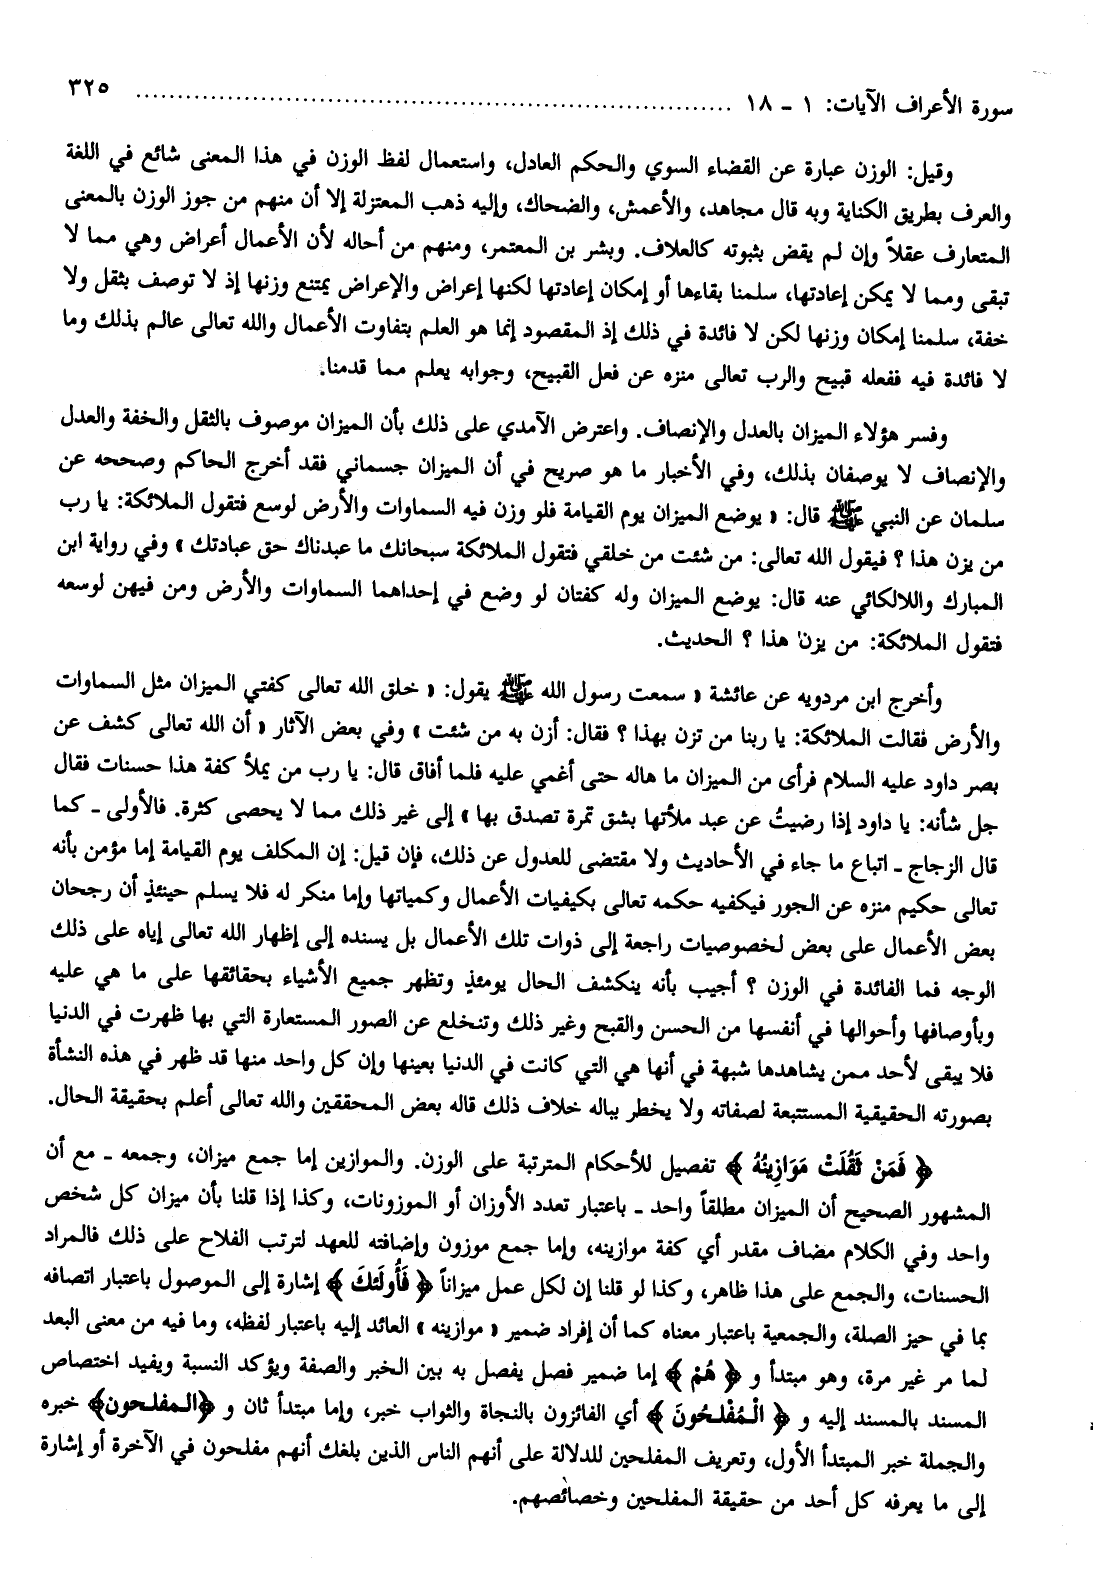 سورة الأعراف الآيات: ١ ـ ١٨ ................................................ ٣٢٥
وقيل: الوزن عبارة عن القضاء السوي والحكم العادل، واستعمال لفظ الوزن في هذا المعنى شائع في اللغة
والعرف بطريق الكناية وبه قال مجاهد، والأعمش، والضحاك، وإليه ذهب المعتزلة إلا أن منهم من جوز الوزن بالمعنى
المتعارف عقلاً وإن لم يقض بثبوته كالعلاف. وبشر بن المعتمر، ومنهم من أحاله لأن الأعمال أعراض وهي مما لا
تبقى ومما لا يمكن إعادتها، سلمنا بقاءها أو إمكان إعادتها لكنها إعراض والإعراض يمتنع وزنها إذ لا توصف بثقل ولا
خفة، سلمنا إمكان وزنها لكن لا فائدة في ذلك إذ المقصود إنما هو العلم بتفاوت الأعمال والله تعالى عالم بذلك وما
لا فائدة فيه ففعله قبيح والرب تعالى منزه عن فعل القبيح، وجوابه يعلم مما قدمنا.
وفسر هؤلاء الميزان بالعدل والإنصاف. واعترض الآمدي على ذلك بأن الميزان موصوف بالثقل والخفة والعدل
والإنصاف لا يوصفان بذلك، وفي الأخبار ما هو صريح في أن الميزان جسماني فقد أخرج الحاكم وصححه عن
سلمان عن النبي ﷺ قال: « يوضع الميزان يوم القيامة فلو وزن فيه السماوات والأرض لوسع فتقول الملائكة: يا رب
من يزن هذا ؟ فيقول الله تعالى: من شئت من خلقي فتقول الملائكة سبحانك ما عبدناك حق عبادتك » وفي رواية ابن
المبارك واللالكائي عنه قال: يوضع الميزان وله كفتان لو وضع في إحداهما السماوات والأرض ومن فيهن لوسعه
فتقول الملائكة: من يزن هذا ؟ الحديث.
وأخرج ابن مردويه عن عائشة « سمعت رسول الله ﷺ يقول: « خلق الله تعالى كفتي الميزان مثل السماوات
والأرض فقالت الملائكة: يا ربنا من تزن بهذا ؟ فقال: أزن به من شئت » وفي بعض الآثار « أن الله تعالى كشف عن
بصر داود عليه السلام فرأى من الميزان ما هاله حتى أغمي عليه فلما أفاق قال: يا رب من يملأ كفة هذا حسنات فقال
جل شأنه: يا داود إذا رضيتُ عن عبد ملأتها بشق تمرة تصدق بها » إلى غير ذلك مما لا يحصى كثرة. فالأولى ـ كما
قال الزجاج ـ اتباع ما جاء في الأحاديث ولا مقتضى للعدول عن ذلك، فإن قيل: إن المكلف يوم القيامة إما مؤمن بأنه
تعالى حكيم منزه عن الجور فيكفيه حكمه تعالى بكيفيات الأعمال وكمياتها وإما منكر له فلا يسلم حينئذٍ أن رجحان
بعض الأعمال على بعض لخصوصيات راجعة إلى ذوات تلك الأعمال بل يسنده إلى إظهار الله تعالى إياه على ذلك
الوجه فما الفائدة في الوزن ؟ أجيب بأنه ينكشف الحال يومئذٍ وتظهر جميع الأشياء بحقائقها على ما هي عليه
وبأوصافها وأحوالها في أنفسها من الحسن والقبح وغير ذلك وتنخلع عن الصور المستعارة التي بها ظهرت في الدنيا
فلا يبقى لأحد ممن يشاهدها شبهة في أنها هي التي كانت في الدنيا بعينها وإن كل واحد منها قد ظهر في هذه النشأة
بصورته الحقيقية المستتبعة لصفاته ولا يخطر بباله خلاف ذلك قاله بعض المحققين والله تعالى أعلم بحقيقة الحال.
﴿ فَمَنْ ثَقُلَتْ مَوَازِينُهُ ﴾ تفصيل للأحكام المترتبة على الوزن. والموازين إما جمع ميزان، وجمعه ـ مع أن
المشهور الصحيح أن الميزان مطلقاً واحد ـ باعتبار تعدد الأوزان أو الموزونات، وكذا إذا قلنا بأن ميزان كل شخص
واحد وفي الكلام مضاف مقدر أي كفة موازينه، وإما جمع موزون وإضافته للعهد لترتب الفلاح على ذلك فالمراد
الحسنات، والجمع على هذا ظاهر، وكذا لو قلنا إن لكل عمل ميزاناً ﴿ فَأُولَئكَ ﴾ إشارة إلى الموصول باعتبار اتصافه
بما في حيز الصلة، والجمعية باعتبار معناه كما أن إفراد ضمير « موازينه » العائد إليه باعتبار لفظه، وما فيه من معنى البعد
لما مر غير مرة، وهو مبتدأ و ﴿ هُمْ ﴾ إما ضمير فصل يفصل به بين الخبر والصفة ويؤكد النسبة ويفيد اختصاص
المسند بالمسند إليه و ﴿ الْمُفْلحُونَ ﴾ أي الفائزون بالنجاة والثواب خبر، وإما مبتدأ ثان و ﴿المفلحون﴾ خبره
والجملة خبر المبتدأ الأول، وتعريف المفلحين للدلالة على أنهم الناس الذين بلغك أنهم مفلحون في الآخرة أو إشارة
إلى ما يعرفه كل أحد من حقيقة المفلحين وخصائصهم.